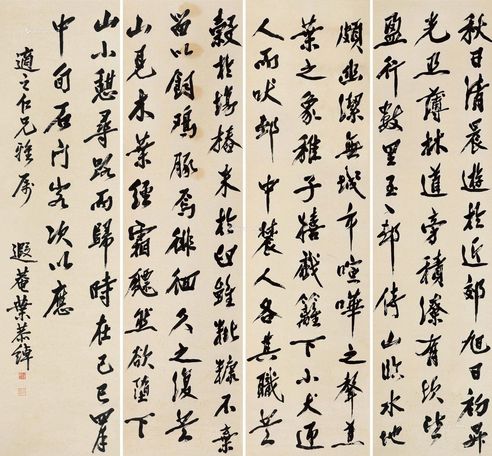 秋日清晨遊於近郊旭日初昇
光照薄林道旁積潦有坎皆
盈行數里至邨倚山臨水地
頗幽潔無城市喧嘩之聲蕉
葉之象稚子戲籬下小犬迎
人而吠邨中農人各其職
穀於場舂米於臼雖秕糠不棄
留以飼鷄豚焉徘徊久之復登
山見木葉經霜飄然欲墮下
山小憩尋路而歸時在己巳四月
中旬石門客次以應
適之仁兄雅屬 遐菴葉恭綽